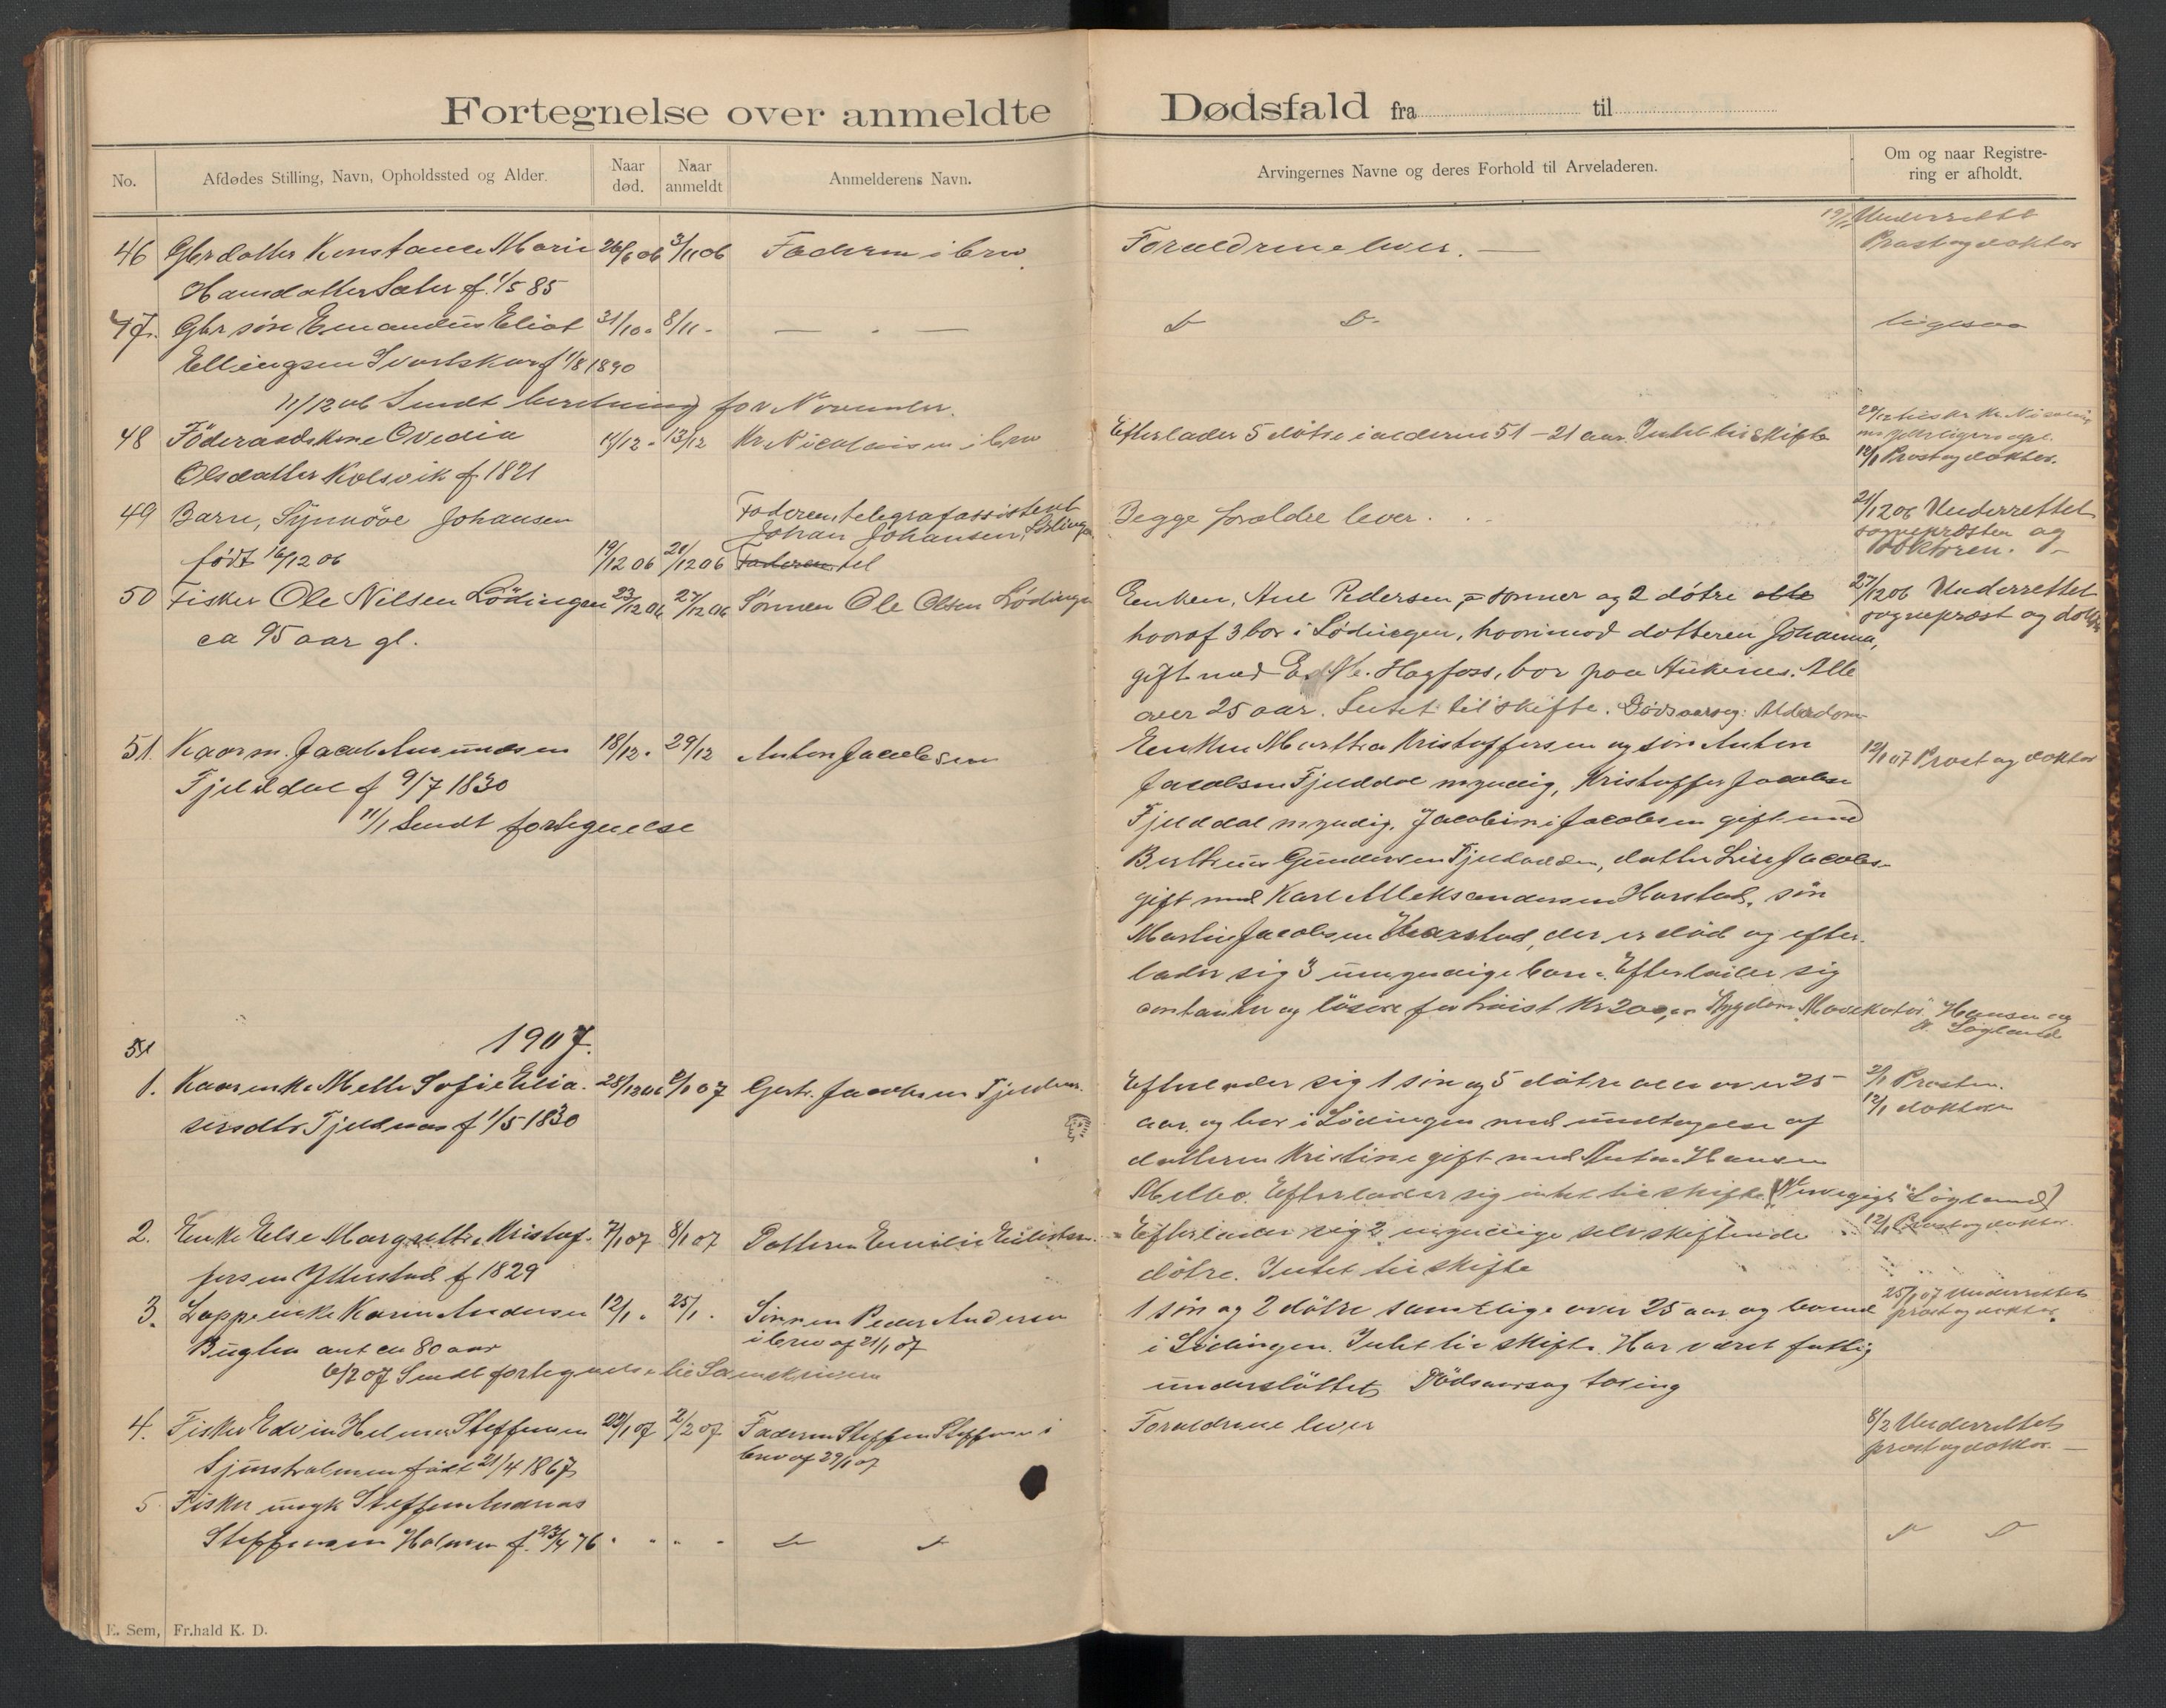 Fortegnelse over anmeldte Dødsfald fra til
No.
Afdødes Stilling, Navn, Opholdssted og Alder.
Naar død.
Naar anmeldt
Anmelderens Navn.
Arvingernes Navne og deres Forhold til Arveladeren.
Om og naar Registrering er afholdt.
46 Gbrdatter Konstance Marie 26/6 06 3/11 06 Faderen i brev Forældrene lever. — Underrettet
Hansdatter Sæter f. 1/5 85 Prost og doktor
47. Gbr søn Emandus Eliot 31/10 . 8/11 - — . — D D- ligesaa
Ellingsen Svartskar f 1/8 1890
11/12 06 Sendt beretning for November.
48 Föderaadskone Ovedia 11/12 - 13/12 Kr Nicolaisen i brev Efterlader 5 døtre i alderen 51 – 21 aar. Intet til skifte
Olsdatter Kolsvik f 1821 12/1 Prost og doktor.
49 Barn, Synnöve Johansen Faderen, telegrafassistent Begge forældre lever. 21/12 06 Underrettet
Johan Johansen, Lödingen sogneprösten og
født 16/12 06 19/12 06 21/12 06 Faderen tel doktoren.
50 Fisker Ole Nilsen Lödingen 23/12 06 27/12 06 Sønnen Ole Olsen Lødingen Enken, Ane Pedersen, sønner og 2 døtre alle 27/12 06 Underrettet
ca 95 aar gl. hvoraf 3 bor i Lödingen, hvorimod datteren Johanna, sogneprest og doktor
gift med Hagfoss, bor paa Alle
over 25 aar. Intet til skifte. Dödsaarsag: Alderdom
51. Kaarm. Jacob Amundsen 18/12 . 29/12 Anton Jacobsen Enken Martha Kristoffersen og søn Anton 12/1 07 Prost og doktor
Fjelddal f 9/7 1830 Jacobsen Fjelddal myndig, Kristoffer Jacobsen
11/1 Sendt fortegnelse Fjelddal myndig, Jacobine Jacobsen gift med
Gundersen datter Lise Jacobs-
gift med Karl Aleksandersen Harstad, søn
Martin Jacobsen Harstad, der er död og efter-
lader sig 3 umyndige barn. Efterlader sig
contanter og lösøre Hansen og
Løgland
51 1907.
1. Kaarenke Mette Sofie Elia- 28/12 06 2/1 07 Gert. Jacobsen Tjeldnes. Efterlader sig 1 søn og 5 døtre alle over 25 2/1 Prosten.
sersdtr Tjeldnes f 1/5 1830 aar, og bor i Lödingen med undtagelse af 12/1 doktoren
datteren Kristine gift med Anton Hansen
Melbo. Efterlader sig intet til skifte. Løgland)
2. Enke Else Margrethe Kristof- 7/1 07 8/1 07 Datteren Emilie Efterlader sig 2 myndige selvskiftende 12/1 Prost og doktor.
fersen Ytterstad f 1829 døtre. Intet til skifte
3. Lappeenke Karen Andersen 12/1 . 25/1 . Sønnen Peder Andersen 1 søn og 2 døtre samtlige over 25 aar og boende 25/1 07 Underrettet
Buglen ant. ca 80 aar i brev af 21/1 07 i Lödingen. Intet til skifte. Har været fattig prost og doktor.
6/2 07 Sendt fortegnelse til Sorenskriveren understöttet. Dödsaarsag tæring
4. Fisker Edvin Helmer Steffensen 22/1 07 2/2 07 Faderen Steffen Steffensen i Forældrene lever 8/2 Underrettet
født 21/4 1867 brev af 29/1 07 prost og doktor. —
5 Fisker ungk Steffen Andreas
Steffensen Holmen f. 23/4 76 . . . . D D D D
E. Sem, Fr.hald K. D.